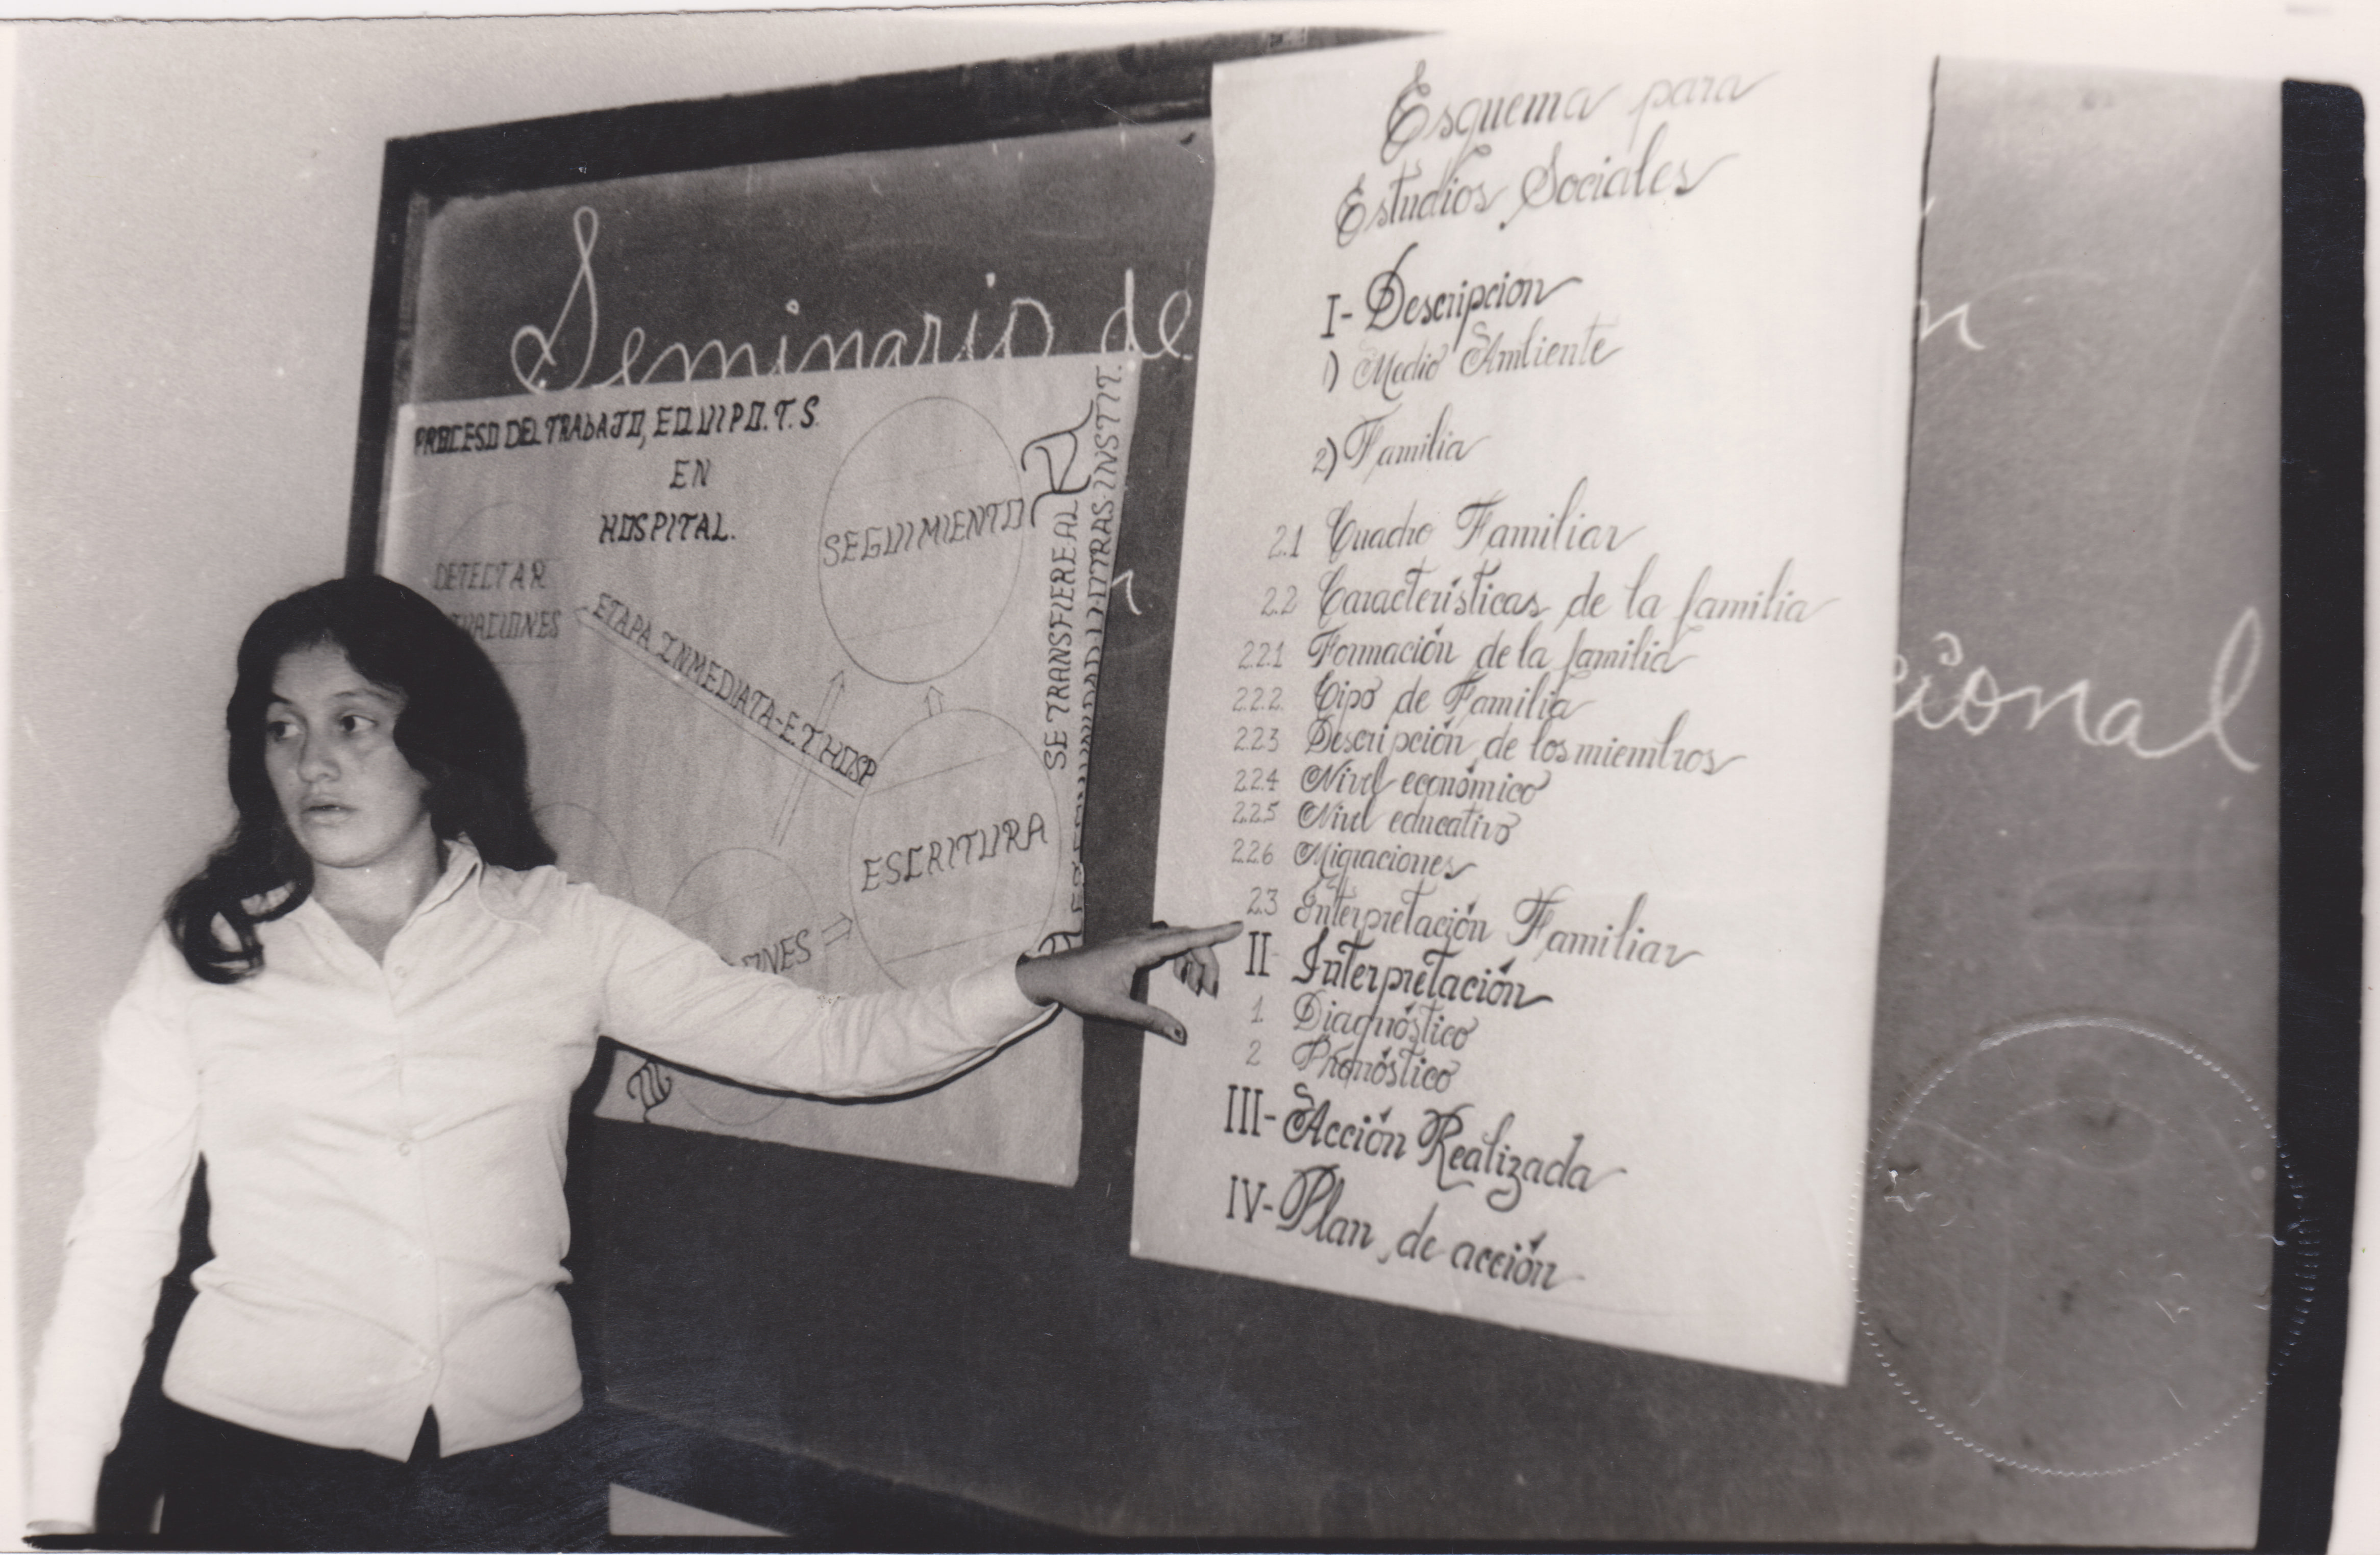 Seminario de
n
cional
PROCESO DEL TRABAJO, EQUIPO. T. S.
EN
HOSPITAL.
DETECTAR
UACIONES
ETAPA INMEDIATA-E.T. HOSP
SEGUIMIENTO
ESCRITURA
SE TRANSFIERE AL
INSTIT.
Esquema para
Estudios Sociales
I- Descripcion
1) Medio Ambiente
2) Familia
2.1 Cuadro Familiar
2.2 Características de la familia
2.2.1 Formación de la familia
2.2.2. Tipo de Familia
2.2.3 Descripción de los miembros
2.2.4 Nivel económico
2.2.5 Nivel educativo
2.2.6 Migraciones
2.3 Interpretación Familiar
II- Interpretación
1 Diagnóstico
2 Pronóstico
III- Acción Realizada
IV- Plan de acción